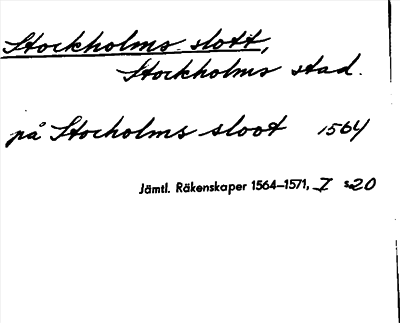 Stockholms slott,
Stockholms stad.
på Stocholms sloot 1564
Jämtl. Räkenskaper 1564–1571, I s 20